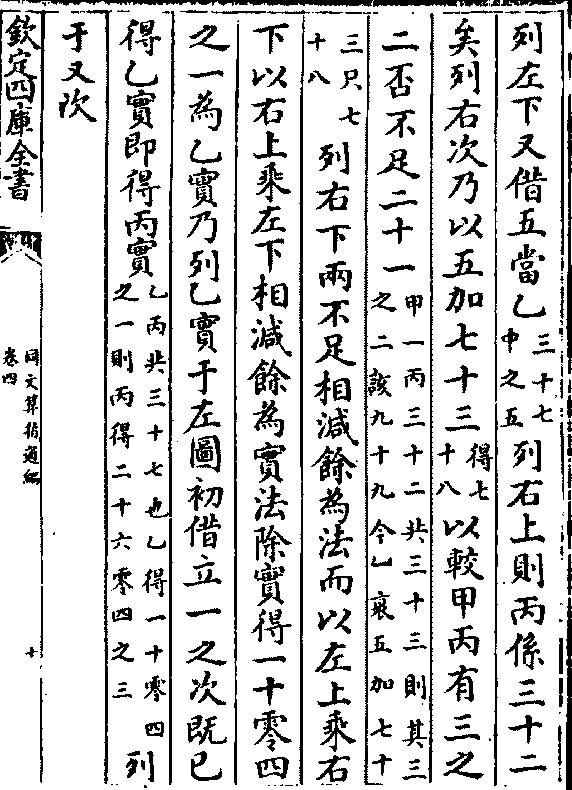 列左下又借五當乙三十七中之五列右上則丙係三十二
矣列右次乃以五加七十三得七十八以較甲丙有三之
二否不足二十一甲一丙三十二共三十三則其三之二該九十九今乙衰五加七十
三只七十八列右下兩不足相減餘為法而以左上乘右
下以右上乘左下相減餘為實法除實得一十零四
之一為乙實乃列乙實于左圖初借立一之次既已
得乙實即得丙實乙丙共三十七也乙得一十零四之一則丙得二十六零四之三列
于又次
欽定四庫全書
同文算指通編
卷四
十